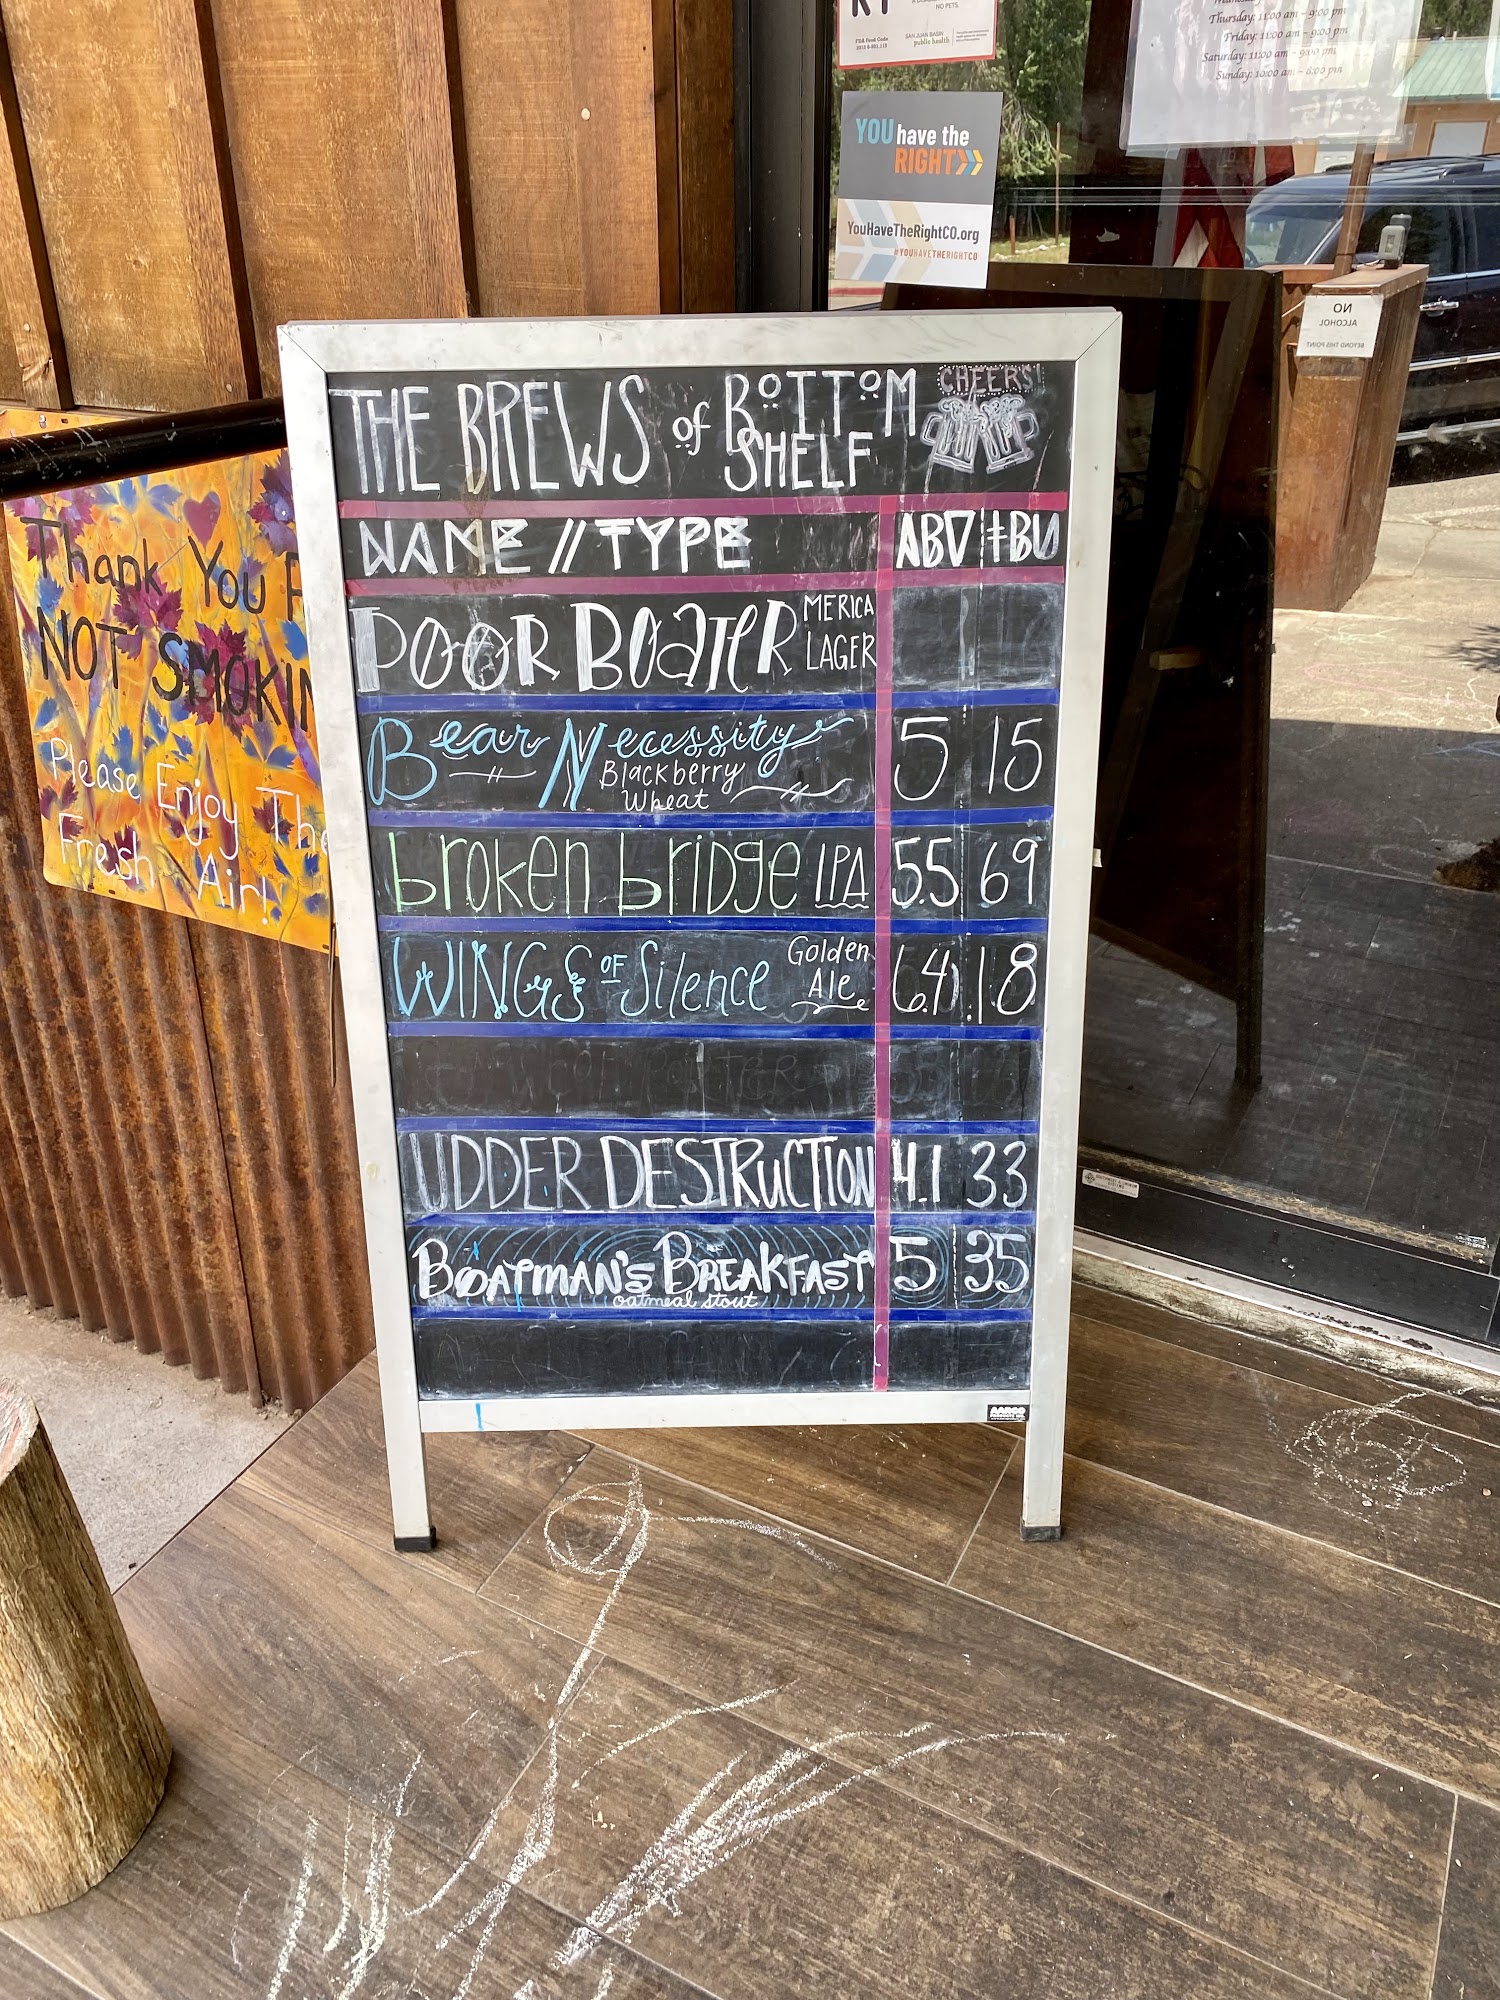 NO PETS.
FDA Food Code
SAN JUAN BASIN
public health
Thursday: 11:00 am - 9:00 pm
Friday: 11:00 am - 9:00 pm
Saturday: 11:00 am - 9:00 pm
Sunday: 10:00 am - 8:00 pm
YOU have the
RIGHT
YouHaveTheRightCO.org
#YOUHAVETHERIGHTCO
NO
ALCOHOL
BEYOND THIS POINT
THE BREWS of BOTTOM SHELF
CHEERS!
NAME // TYPE ABV IBU
POOR BOATER MERICA LAGER
Bear Necessity 5 15
Blackberry
Wheat
broken bridge IPA 5.5 69
WINGS OF Silence Golden Ale 6.4 18
UDDER DESTRUCTION 4.1 33
BOATMAN'S BREAKFAST 5 35
oatmeal stout
AARCO
Thank You F
NOT SMOKIN
Please Enjoy The
Fresh Air!